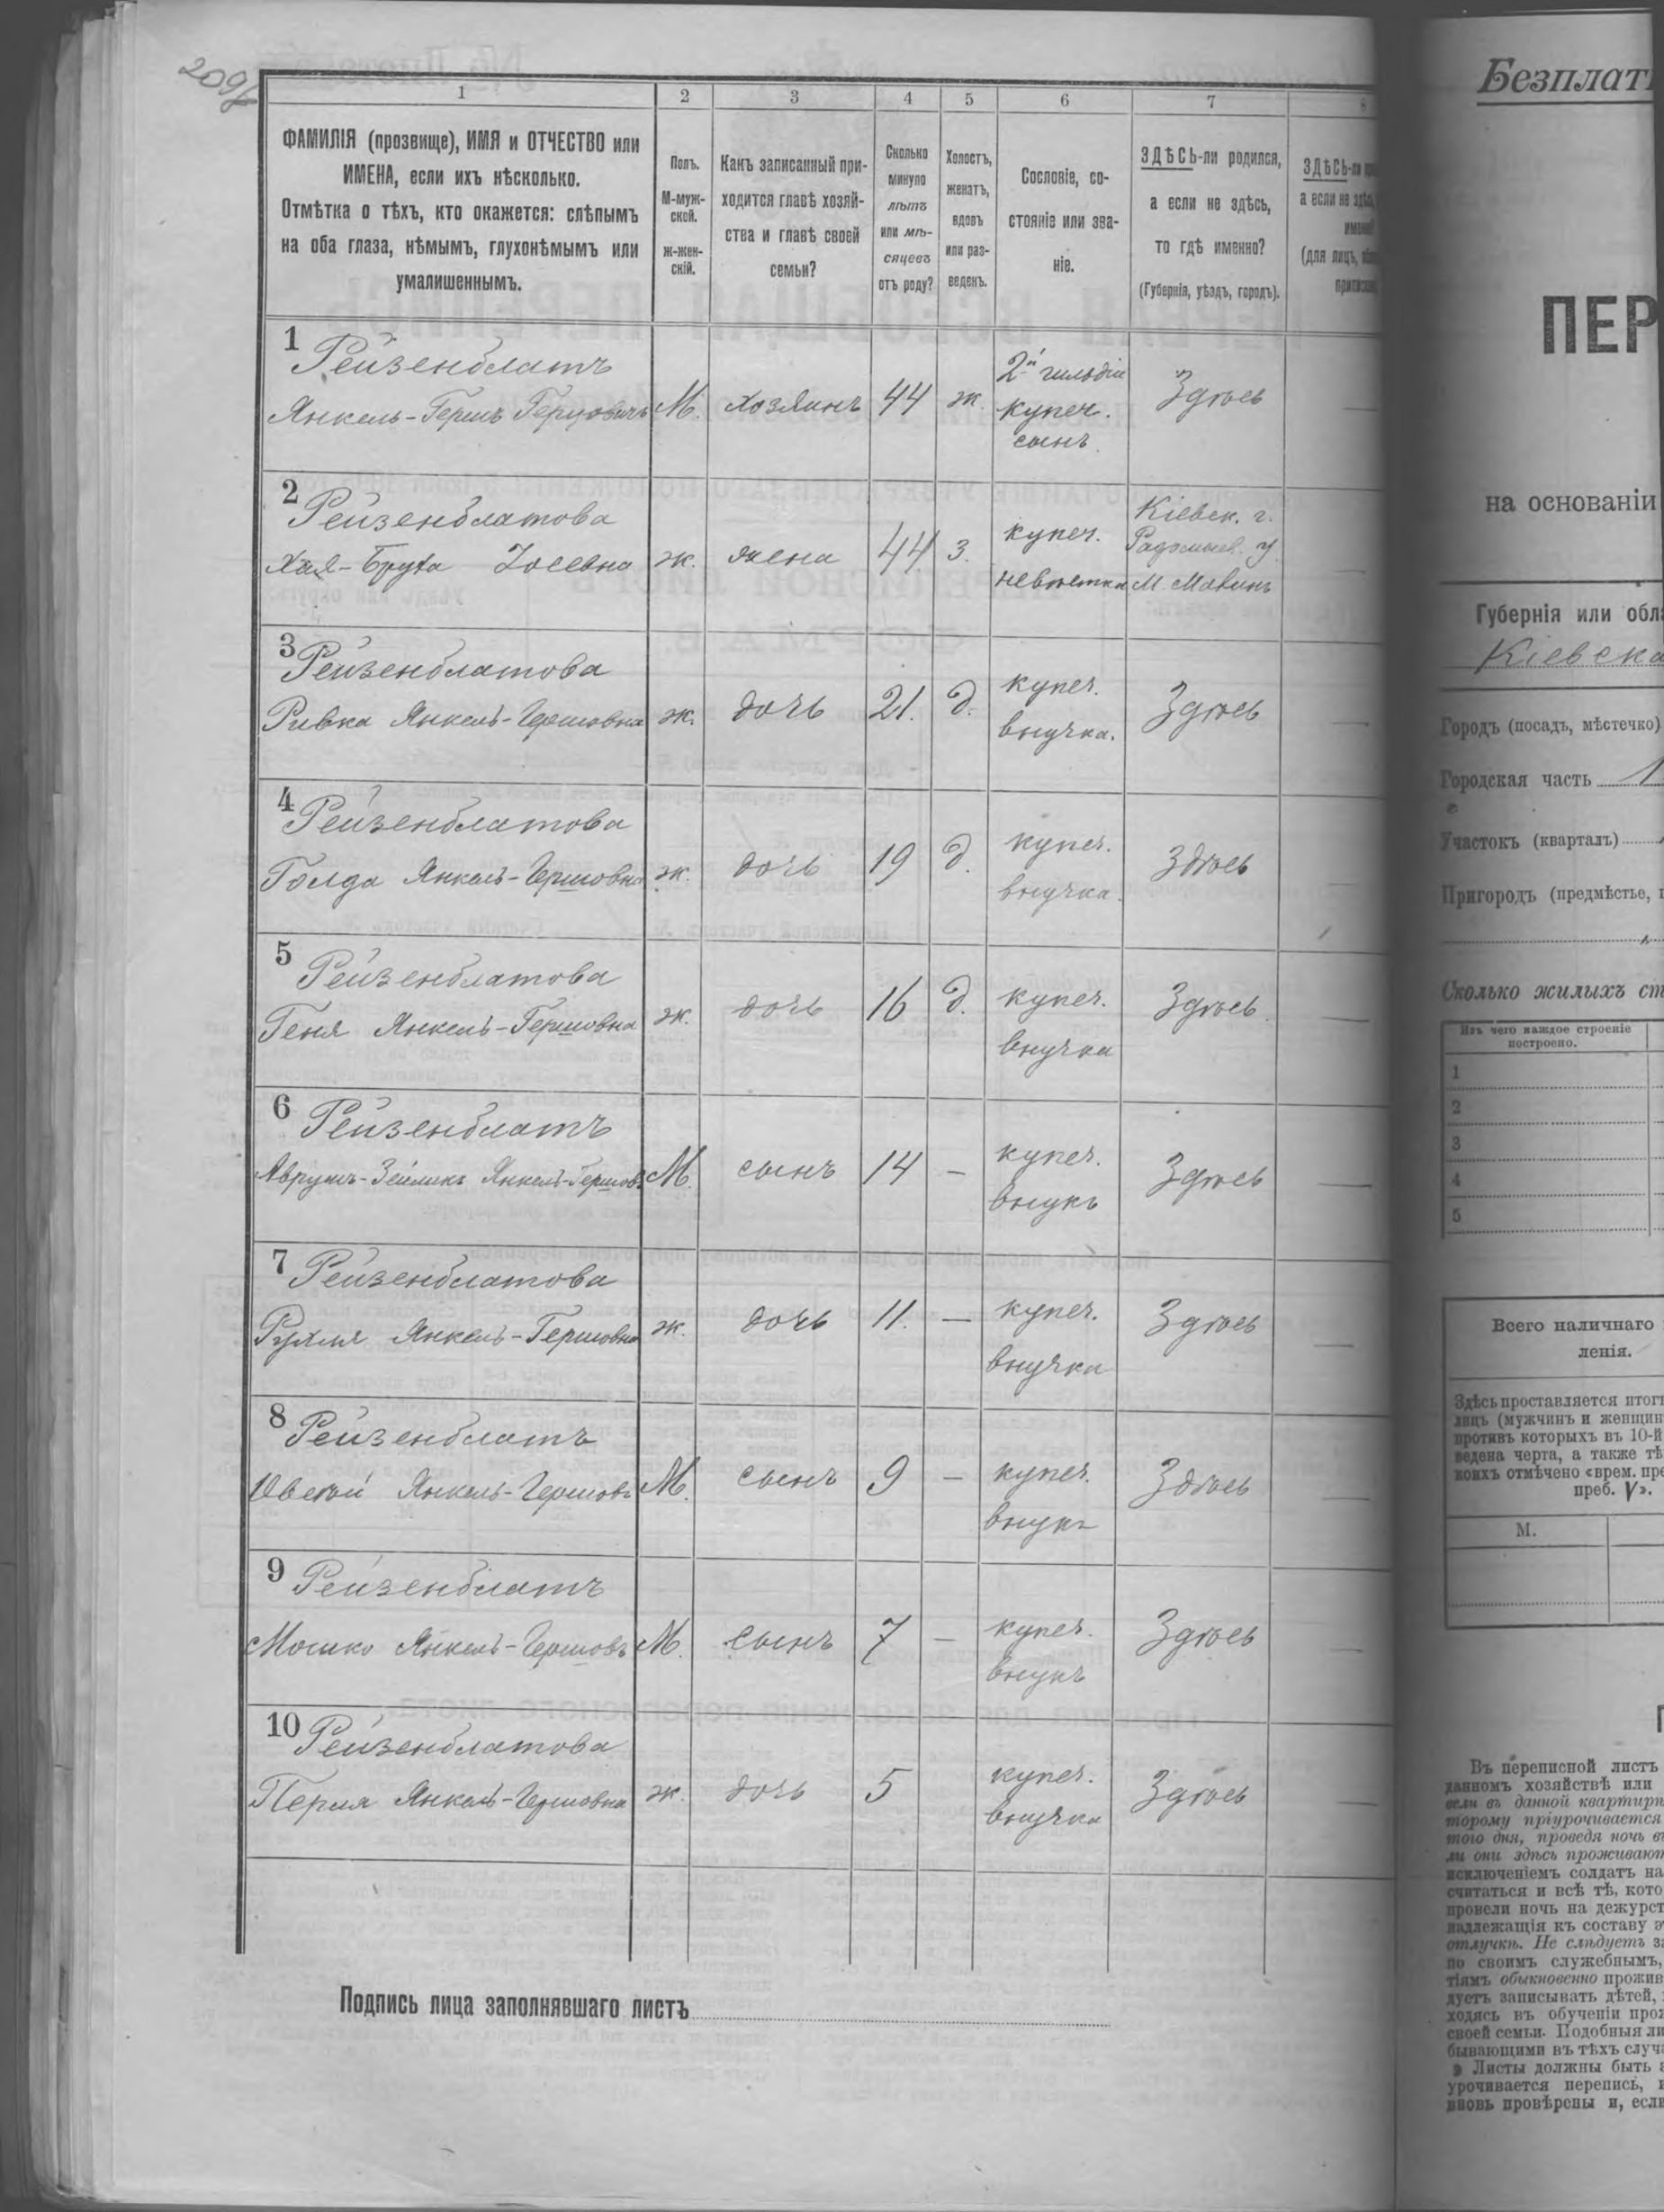 209
1 2 3 4 5 6 7 8
ФАМИЛІЯ (прозвище), ИМЯ и ОТЧЕСТВО или
ИМЕНА, если ихъ нѣсколько.
Отмѣтка о тѣхъ, кто окажется: слѣпымъ
на оба глаза, нѣмымъ, глухонѣмымъ или
умалишеннымъ.
Полъ.
М-муж-
ской.
ж-жен-
скій.
Какъ записанный при-
ходится главѣ хозяй-
ства и главѣ своей
семьи?
Сколько
минуло
лѣтъ
или мѣ-
сяцевъ
отъ роду?
Холостъ,
женатъ,
вдовъ
или раз-
веденъ.
Сословіе, со-
стояніе или зва-
ніе.
ЗДѢСЬ-ли родился,
а если не здѣсь,
то гдѣ именно?
(Губернія, уѣздъ, городъ).
ЗДѢСЬ-ли
а если не здѣсь
(для лицъ,
1
Рейзенблатъ
Янкель-Гершъ Герцовичъ
М.
хозяинъ
44
ж.
2й гильдіи
купеч.
сынъ
Здѣсь
2
Рейзенблатова
Хая-Бруха
ж.
жена
44
З.
купеч.
невѣстка
Кіевск. г.
Радомысл. у.
М. Макинъ
3
Рейзенблатова
Ривка Янкель-Гершовна
ж.
дочь
21.
д.
купеч.
внучка.
Здѣсь
4
Рейзенблатова
Голда Янкель-Гершовна
ж.
дочь
19
д.
купеч.
внучка.
Здѣсь
5
Рейзенблатова
Геня Янкель-Гершовна
ж.
дочь
16
д.
купеч.
внучка
Здѣсь
6
Рейзенблатъ
Аврумъ-Зейликъ Янкель-Гершов.
М.
сынъ
14
–
купеч.
внукъ
Здѣсь
7
Рейзенблатова
Рухля Янкель-Гершовна
ж.
дочь
11.
–
купеч.
внучка
Здѣсь
8
Рейзенблатъ
Овсѣй Янкель-Гершовъ
М.
сынъ
9
–
купеч.
внукъ
Здѣсь
9
Рейзенблатъ
Мошко Янкель-Гершовъ
М.
сынъ
7
–
купеч.
внукъ
Здѣсь
10
Рейзенблатова
Перля Янкель-Гершовна
ж.
дочь
5
купеч.
внучка
Здѣсь
Подпись лица заполнявшаго листъ
Безплат
ПЕР
на основаніи
Губернія или обла
Кіевска
Городъ (посадъ, мѣстечко)
Городская часть 1
Участокъ (кварталъ)
Пригородъ (предмѣстье,
Сколько жилыхъ ст
Изъ чего каждое строеніе
построено.
1
2
3
4
5
Всего наличнаго
ленія.
Здѣсь проставляется итогъ
лицъ (мужчинъ и женщин
противъ которыхъ въ 10-й
ведена черта, а также тѣ
коихъ отмѣчено «врем. пре
преб. V».
М.
Въ переписной листъ
данномъ хозяйствѣ или
если въ данной квартирѣ
торому пріурочивается
того дня, проведя ночь въ
ли они здѣсь проживают
исключеніемъ солдатъ на
считаться и всѣ тѣ, кото
провели ночь на дежурст
надлежащія къ составу э
отлучкѣ. Не слѣдуетъ за
по своимъ служебнымъ,
тіямъ обыкновенно прожив
дуетъ записывать дѣтей,
ходясь въ обученіи прож
своей семьи. Подобныя ли
бывающими въ тѣхъ случа
Листы должны быть
урочивается перепись,
вновь провѣрены и, если